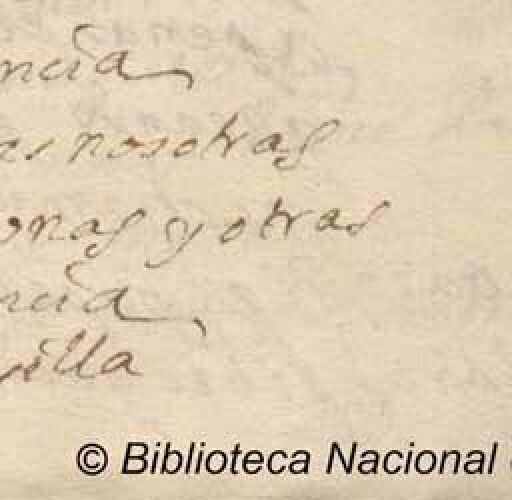 ncia
as nosotras
onas y otras
ncia
illa
© Biblioteca Nacional